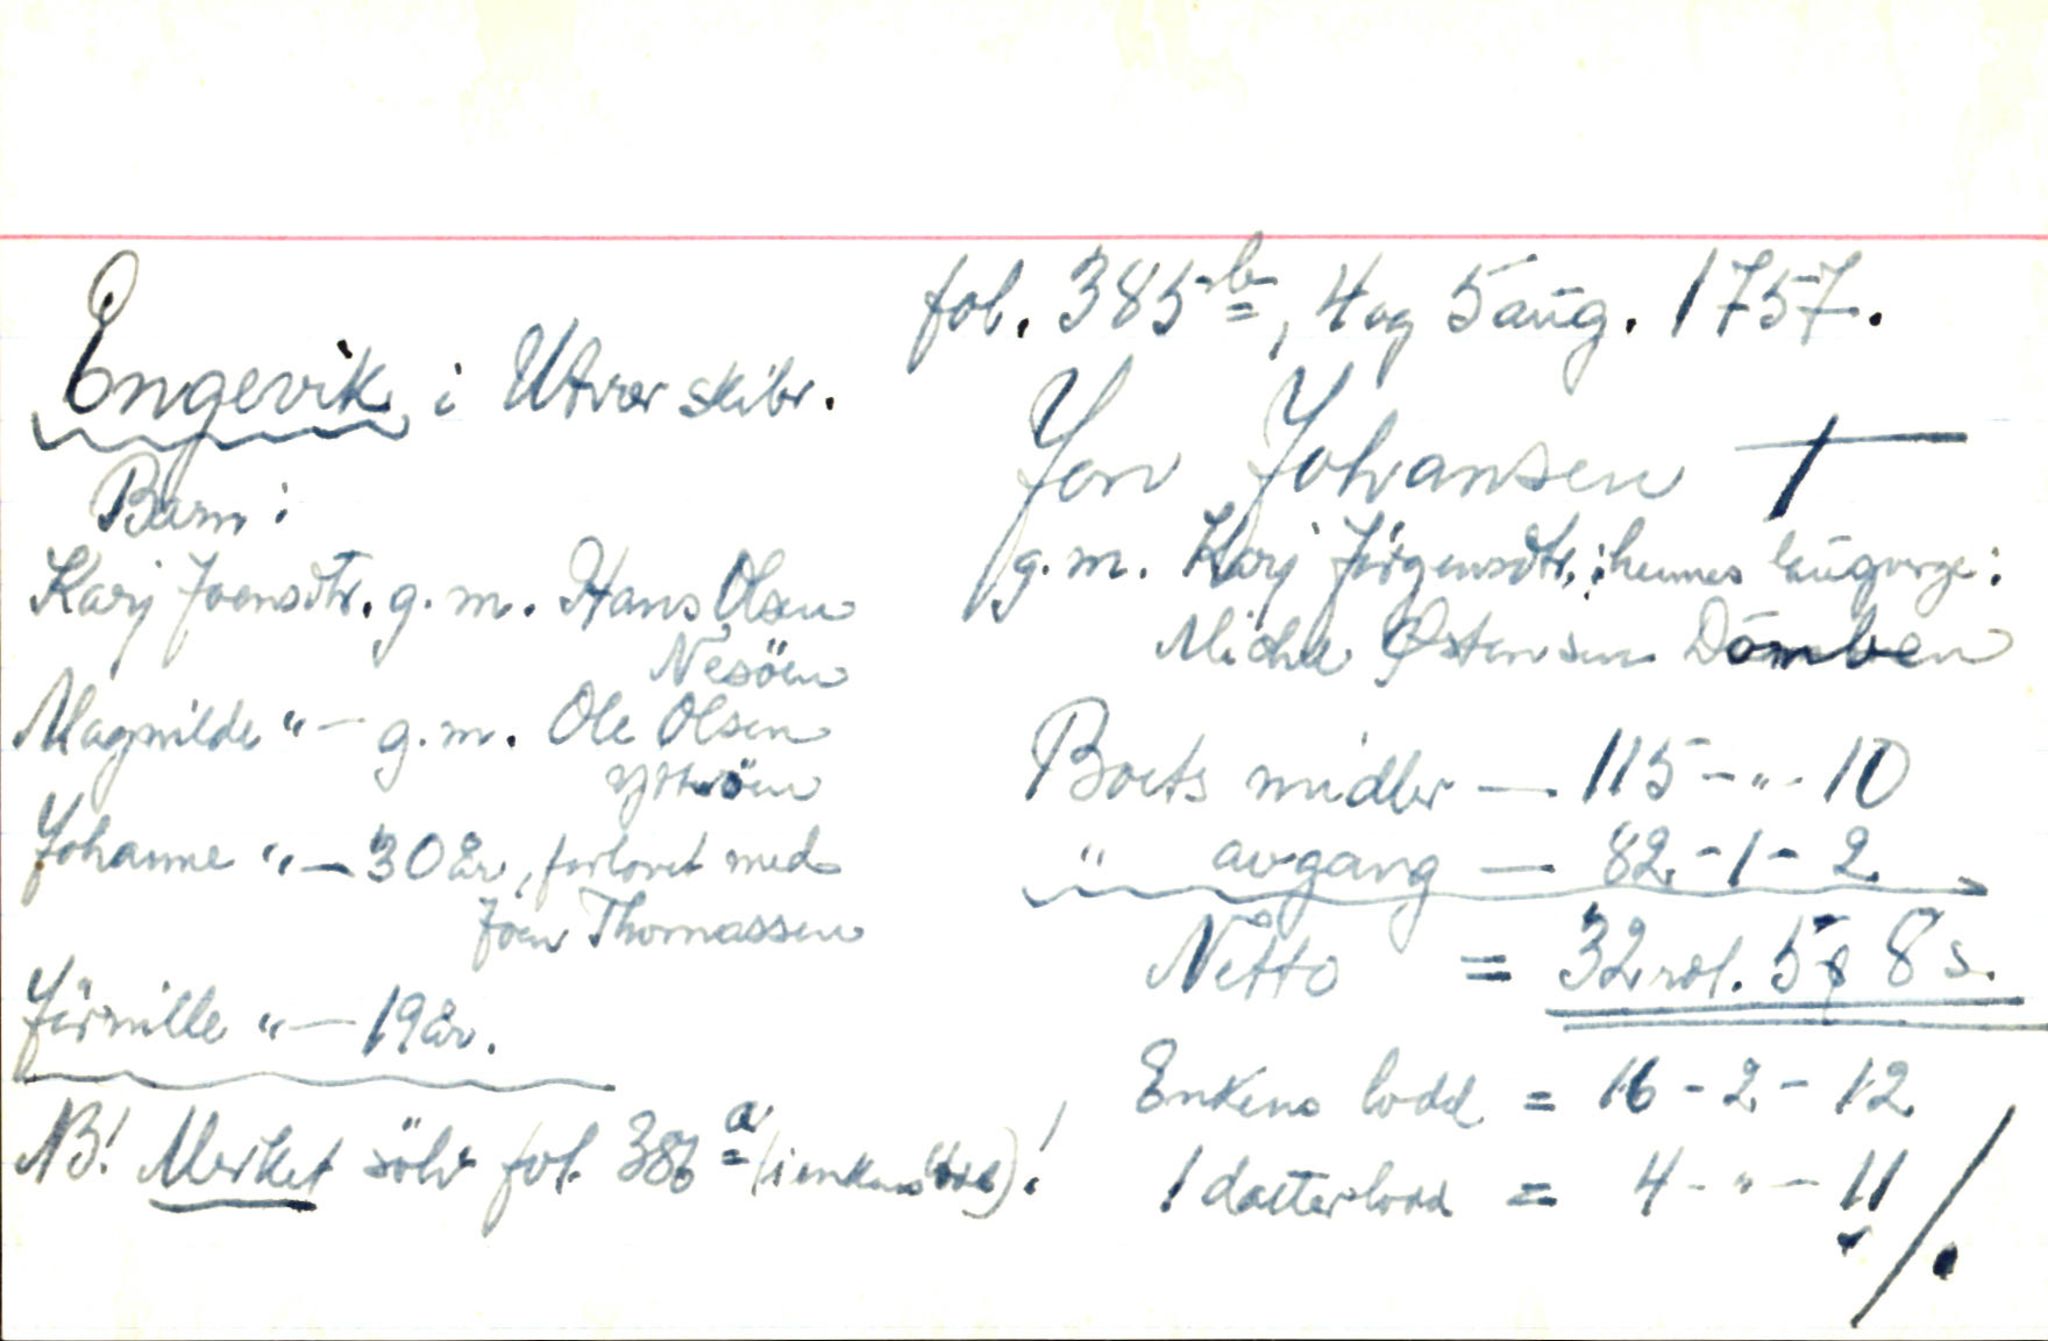 fol. 385 b, 4 og 5 aug. 1757.
Engevik i Utvær skibr.
Jon Johansen †
g.m. Karj Jörgensdtr, ; hennes laugverge:
Michel Østensen Dömben
Barn:
Karj Joensdtr. g.m. Hans Olsen
Nesöen
Magnilde " — g.m. Ole Olsen
Johanne " — 30 år, forlovet med
Joen Thomassen
Jörnille " — 19 år.
NB! Merket sölv fol. 386 a (i enkens lodd)!
Boets midler — 115 - " - 10
" avgang — 82 - 1 - 2
Netto = 32 rdl. 5 8 s.
Enkens lodd = 16 - 2 - 12
1 datterlodd = 4 - " - 11